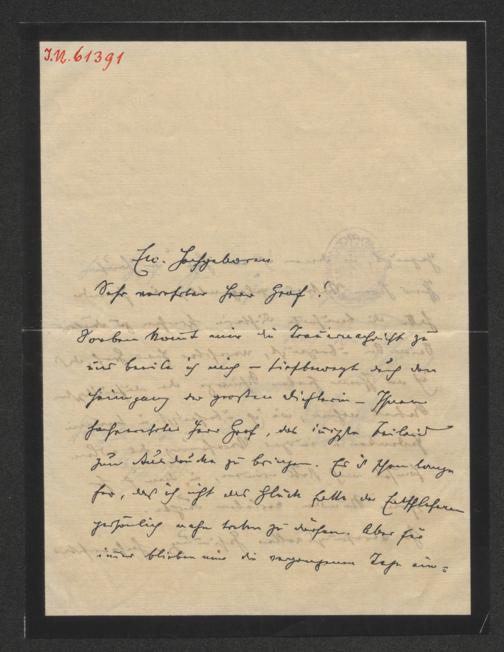 J.N. 61391
Ew. Hochgeboren
Sehr verehrter Herr Graf!
Soeben kommt mir die Trauernachricht zu
und beeile ich mich – tiefbewegt durch den
Heimgang der großen Dichterin – Ihnen
hochverehrter Herr Graf, das innigste Beileid
zum Ausdrucke zu bringen. Es ist schon lange
her, daß ich nicht das Glück hatte, der Entschlafenen
persönlich nahe treten zu dürfen. Aber für
immer bleiben mir die vergangenen Tage ein=